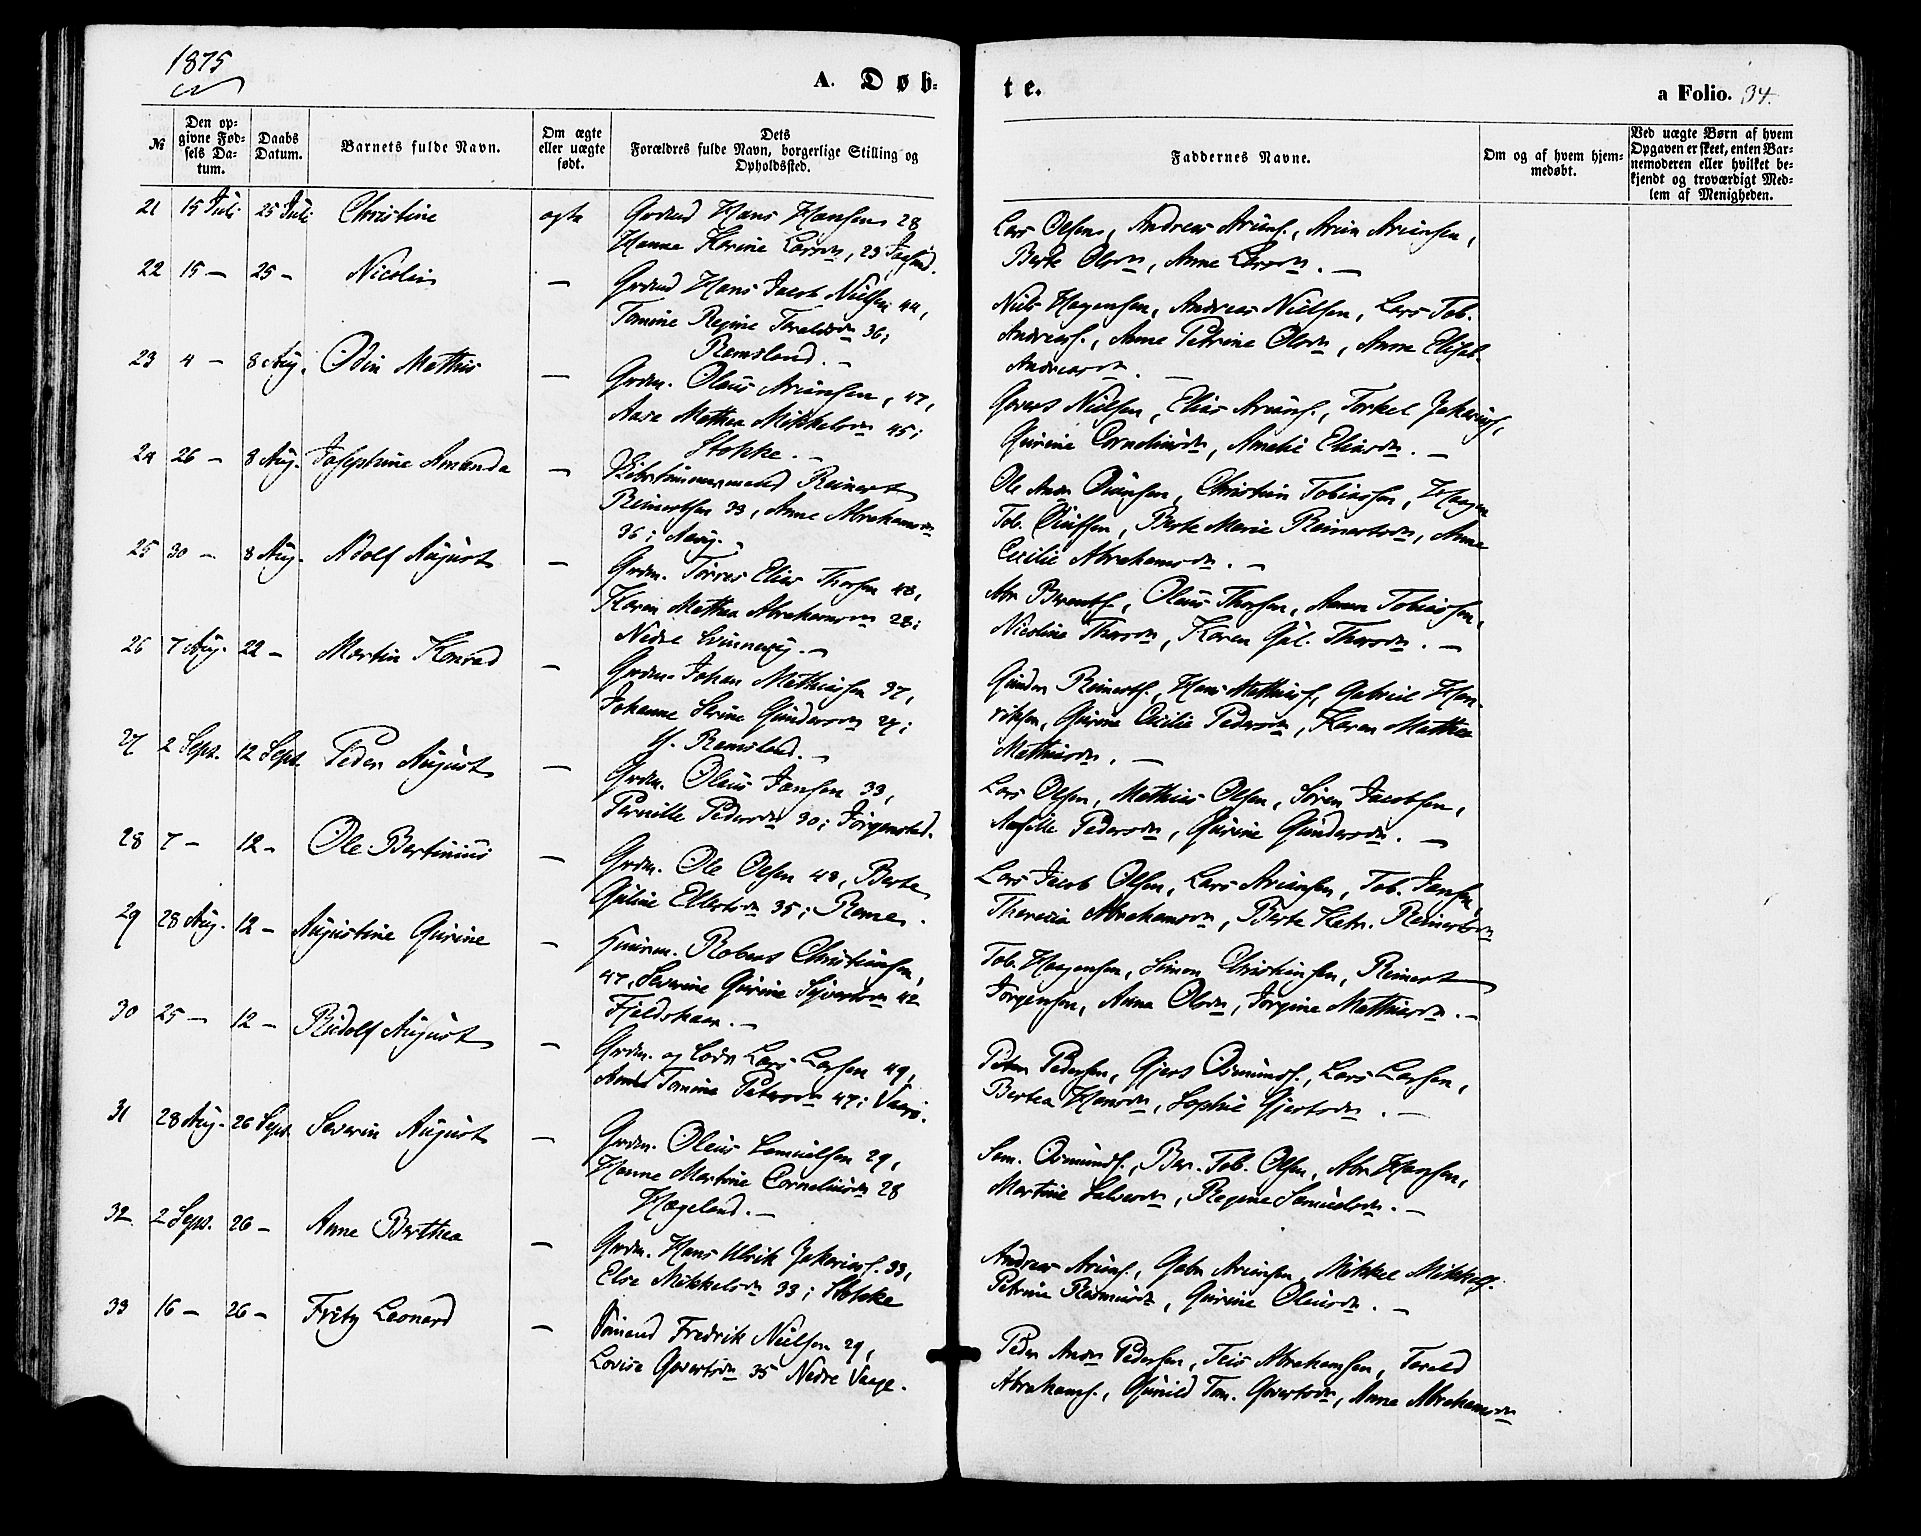 1875
A. Døb-
te.
a Folio. 34.
№
Den op-
givne Fød-
sels Da-
tum.
Daabs
Datum.
Barnets fulde Navn.
Om ægte
eller uægte
født.
Dets
Forældres fulde Navn, borgerlige Stilling og
Opholdssted.
Faddernes Navne.
Om og af hvem hjem-
medøbt.
Ved uægte Børn af hvem
Opgaven er skeet, enten Bar-
nemoderen eller hvilket be-
kjendt og troværdigt Med-
lem af Menigheden.
21 15 Juli 25 Juli Christine ægte
Hans Hansen 28
Hanne Karine Larsdn, 23
Lars Olsen, Andreas
Berte Olsdn, Anne Larsdn. —
22 15 — 25 — —
Hans Jacob Nielsen 44,
Tomine Regine 36;
Ramsland. —
Niels Hagensen, Andreas Nielsen, Lars Tob.
Andreasf., Anne Petrine Olsdn, Anne Elisab.
Andreasdn. —
23 4 — 8 Aug. Odin Mathis —
Grdm. Olaus 47,
Aase Mathea Mikkelsdn 45;
Stokke. —
Nielsen, Elias Torkel
Gurine Corneliusdn, Amalie Eliasdn. —
24 26 — 8 Aug. Josephine Amanda —
Skibstimmermand Reinert
Reinertsen 33, Anne Abrahamsdn
36;
Ole Christian Tobiassen, Haagen
Tob. Berte Marie Reinertsdn, Anne
Cecilie Abrahamsdn. —
25 30 — 8 Aug. Adolf August —
Grdm. Tørres Elias Thorsen 48,
Karen Mathea Abrahamsdn 28;
Nedre
Abr. Berentsf., Olaus Thorsen, Tobiassen,
Nicoline Thorsdn, Karen Gul. Thorsdn. —
26 7 Aug. 22 — Martin Konrad —
Grdm. Johan Mathiasen 37,
Johanne Serine Gundersdn 27;
Y. Ramsland. —
Gunder Reinertsf., Hans Mathiasf., Gabriel Hen-
riksen, Gurine Cecilie Pedersdn, Karen Mathea
Mathiasdn. —
27 2 Sept. 12 Sept. Peder August —
Grdm. Olaus Jansen 33,
Pernille Pedersdn 30; Jørgenstad.
Lars Olsen, Mathias Olsen, Søren Jacobsen,
Pedersdn, Gurine Gundersdn. —
28 7 — 12 — Ole Bertinius —
Grdm. Ole Olsen 48, Berte
Guline Ellertsdn 35;
Lars Jacob Olsen, Lars Tob. Jansen,
Theresia Abrahamsdn, Berte Katr. Reinertsdn
29 28 Aug. 12 — Augustine Gurine —
Robert Christiansen,
47, Severine Gurine Syvertsdn 42
Tob. Haagensen, Simon Christiansen, Reinert
Jørgensen, Anna Olsdn, Jørgine Mathiasdn. —
30 25 — 12 — Rudolf August —
Grdm. og Lods Lars Larsen 49,
Tomine Petersdn 47;
Peter Pedersen, Gjert Osmundsf., Lars Larsen,
Bertea Hansdn, Sophie Gjertsdn. —
31 28 Aug. 26 Sept. Severin August —
Grdm. Olaus Samuelsen 29,
Hanne Martine Corneliusdn 28
Hægeland. —
Sam. Osmundsf., Ber. Tob. Olsen, Abr. Hansen,
Martine Regine Samuelsdn. —
32 2 Sept. 26 — Anne Berthea —
Grdm. Hans Ulrik 33,
Else Mikkelsdn 33; Stokke
Andreas Gabr. Mikkel Mikkelsf.
Petrine Rasmusdn, Gurine Olausdn. —
33 16 — 26 — Fritz Leonard —
Sømand Fredrik Nielsen 29,
Lovise Govertsdn 35 Nedre Vaage.
Peder Andr. Pedersen, Teis Abrahamsen, Torald
Abrahamsf., Gunild Tom. Govertsdn, Anne Abrahamsdn